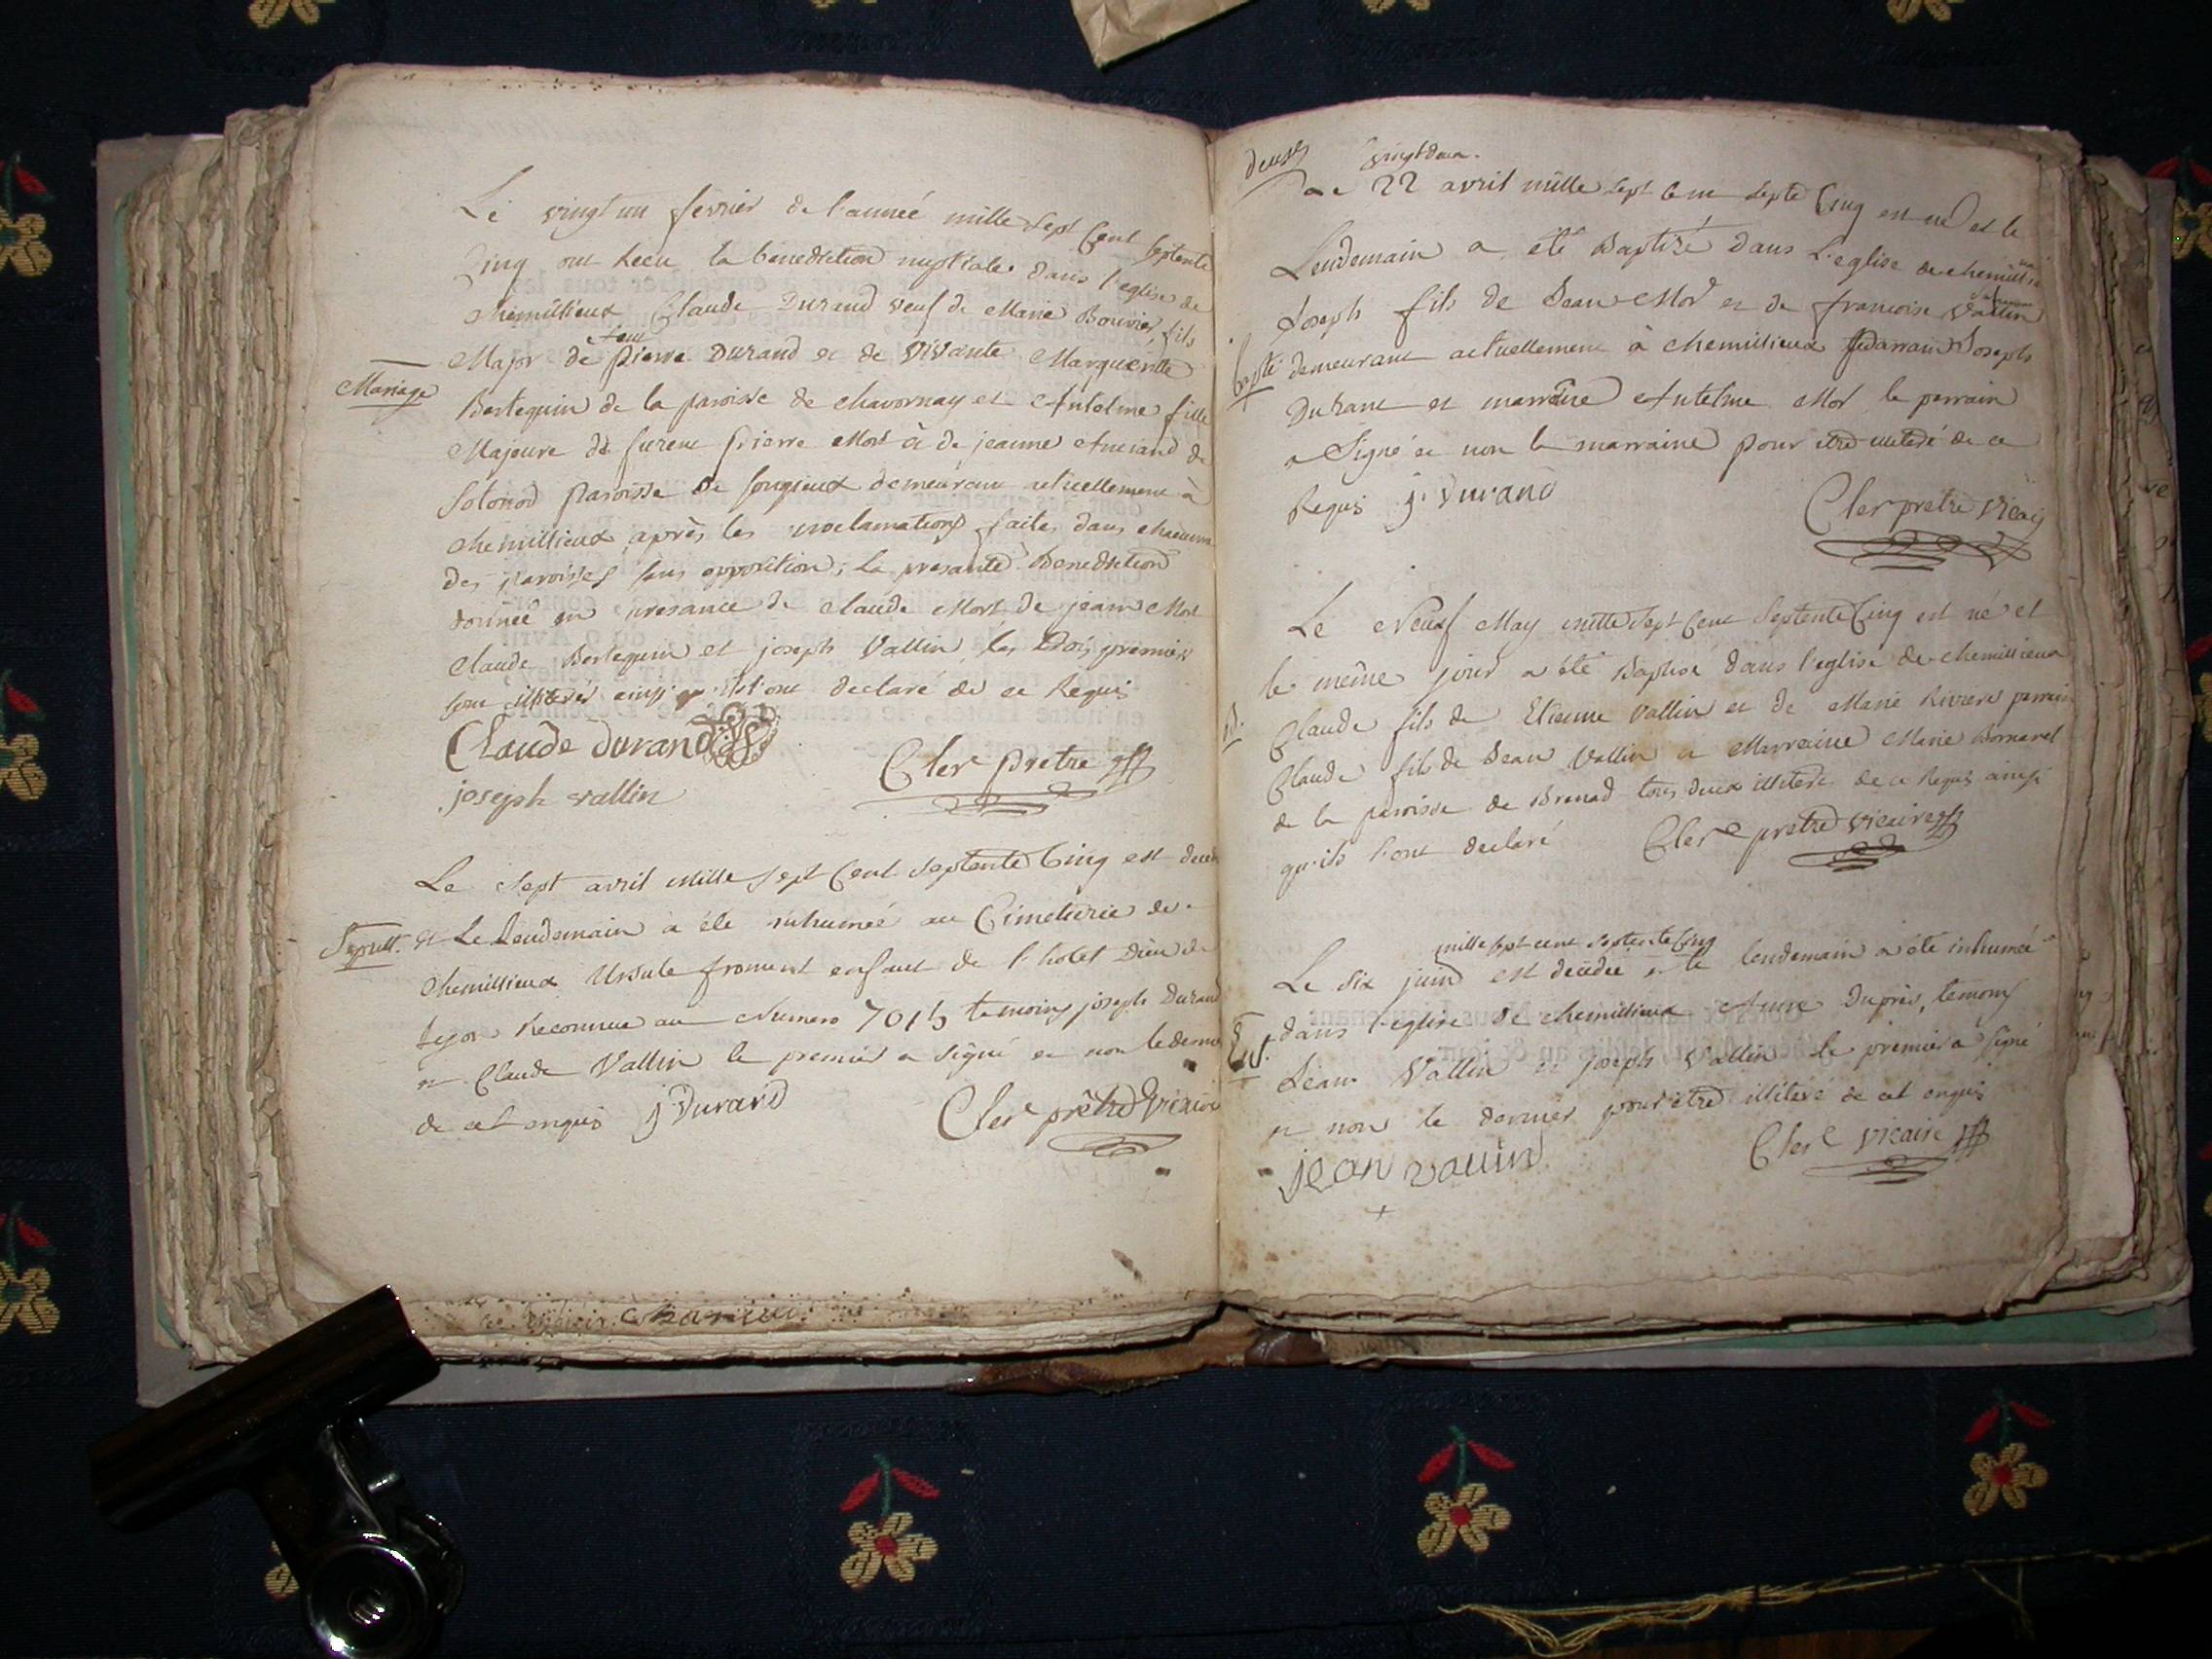 Le vingt un fevrier de l'année mille sept cent septente
Cinq ont recu la benediction nuptiale dans l'eglise de
chemillieux Claude Durand veuf de Marie Bouvier, fils
feu
Mariage
Major de pierre Durand et de Vivante Margueritte
Bertequin de la paroisse de chavornay et Antelme fille
Majeure de furent pierre Mort et de jeanne de
Solonod paroisse de songieux demeurant actuellement à
chemillieux après les proclamations faites dans chacune
des paroisses sans opposition; la presante Benediction
donnée en presance de claude Mort de jean Mort
claude Bertequin et joseph Vallin les trois premiers
sont illiterés ainsi qu'ils l'ont declaré de ce Requis
Claude durand
Cler pretre
joseph vallin
Le Sept avril Mille sept Cent septente Cinq est
Sepult.
et Le Lendemain a été inhumée au Cimetierie de
chemillieux Ursule froment enfant de l'hotel Dieu de
Lyon Reconnue au Numero temoins joseph Durand
et Claude Vallin le premier a signé et non le dernier
de cet enquis j Durand
Cler prêtre vicaire
deux
vingt deux.
Le 22 avril mille sept cent septe Cinq est né et le
Lendemain a été Baptisé dans L'eglise de chemillieux
Joseph fils de Jean Mort et de francoise Vallin
Bapte
demeurant actuellement à chemillieux parrain Joseph
Durant et marraine Antelme Mort le parrain
a Signé et non la marraine pour etre illiteré de ce
Requis j. Durand
Cler pretre vicaire
Le Neuf May mille sept Cent Septente Cinq est né et
le même jour a été Baptisé dans l'eglise de chemillieux
B.
Claude fils de Etienne Vallin et de Marie Riviere parrain
Claude fils de Jean Vallin et Marraine Marie Bornarel
de la paroisse de Brenod tous deux illiteré de ce Requis ainsi
qu'ils l'ont declaré
Cler pretre vicaire
mille sept cent septente Cinq
Le six juin est decedée et le lendemain a été inhumée
dans l'eglise de chemillieux Anne Dupres, temoins
Jean Vallin et joseph Vallin le premier a signé
et non le dernier pour être illiteré de cet enquis
jean vallin
Cler vicaire